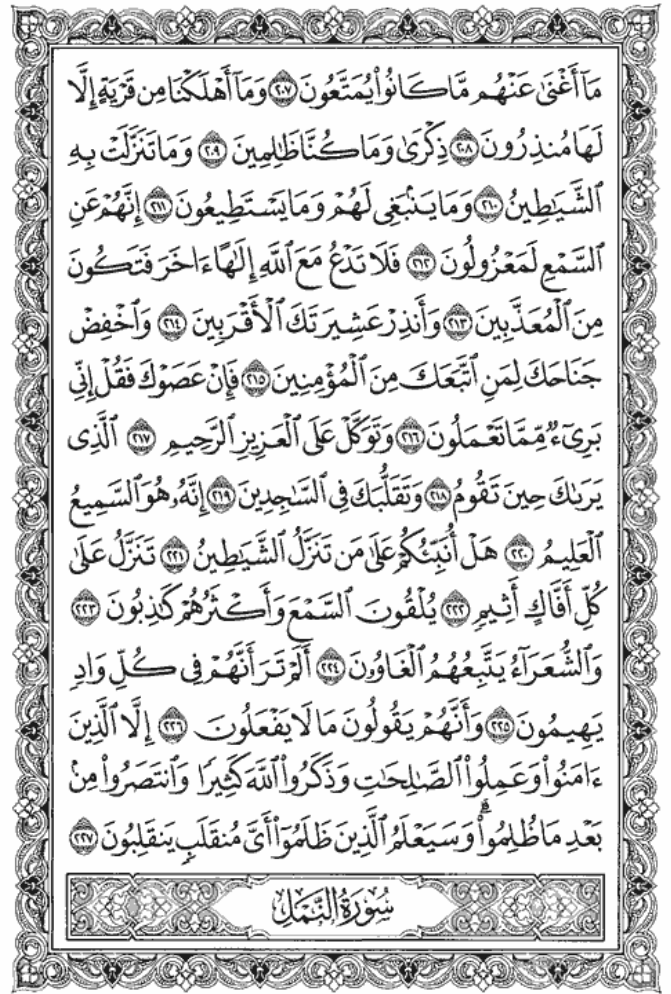 مَآ أَغْنَىٰ عَنْهُم مَّا كَانُوا۟ يُمَتَّعُونَ ٢٠٧ وَمَآ أَهْلَكْنَا مِن قَرْيَةٍ إِلَّا
لَهَا مُنذِرُونَ ٢٠٨ ذِكْرَىٰ وَمَا كُنَّا ظَـٰلِمِينَ ٢٠٩ وَمَا تَنَزَّلَتْ بِهِ
ٱلشَّيَـٰطِينُ ٢١٠ وَمَا يَنۢبَغِى لَهُمْ وَمَا يَسْتَطِيعُونَ ٢١١ إِنَّهُمْ عَنِ
ٱلسَّمْعِ لَمَعْزُولُونَ ٢١٢ فَلَا تَدْعُ مَعَ ٱللَّهِ إِلَـٰهًا ءَاخَرَ فَتَكُونَ
مِنَ ٱلْمُعَذَّبِينَ ٢١٣ وَأَنذِرْ عَشِيرَتَكَ ٱلْأَقْرَبِينَ ٢١٤ وَٱخْفِضْ
جَنَاحَكَ لِمَنِ ٱتَّبَعَكَ مِنَ ٱلْمُؤْمِنِينَ ٢١٥ فَإِنْ عَصَوْكَ فَقُلْ إِنِّى
بَرِىٓءٌ مِّمَّا تَعْمَلُونَ ٢١٦ وَتَوَكَّلْ عَلَى ٱلْعَزِيزِ ٱلرَّحِيمِ ٢١٧ ٱلَّذِى
يَرَىٰكَ حِينَ تَقُومُ ٢١٨ وَتَقَلُّبَكَ فِى ٱلسَّـٰجِدِينَ ٢١٩ إِنَّهُۥ هُوَ ٱلسَّمِيعُ
ٱلْعَلِيمُ ٢٢٠ هَلْ أُنَبِّئُكُمْ عَلَىٰ مَن تَنَزَّلُ ٱلشَّيَـٰطِينُ ٢٢١ تَنَزَّلُ عَلَىٰ
كُلِّ أَفَّاكٍ أَثِيمٍ ٢٢٢ يُلْقُونَ ٱلسَّمْعَ وَأَكْثَرُهُمْ كَـٰذِبُونَ ٢٢٣
وَٱلشُّعَرَآءُ يَتَّبِعُهُمُ ٱلْغَاوُۥنَ ٢٢٤ أَلَمْ تَرَ أَنَّهُمْ فِى كُلِّ وَادٍ
يَهِيمُونَ ٢٢٥ وَأَنَّهُمْ يَقُولُونَ مَا لَا يَفْعَلُونَ ٢٢٦ إِلَّا ٱلَّذِينَ
ءَامَنُوا۟ وَعَمِلُوا۟ ٱلصَّـٰلِحَـٰتِ وَذَكَرُوا۟ ٱللَّهَ كَثِيرًا وَٱنتَصَرُوا۟ مِنۢ
بَعْدِ مَا ظُلِمُوا۟ ۗ وَسَيَعْلَمُ ٱلَّذِينَ ظَلَمُوٓا۟ أَىَّ مُنقَلَبٍ يَنقَلِبُونَ ٢٢٧
سُورَةُ النَّمْلِ